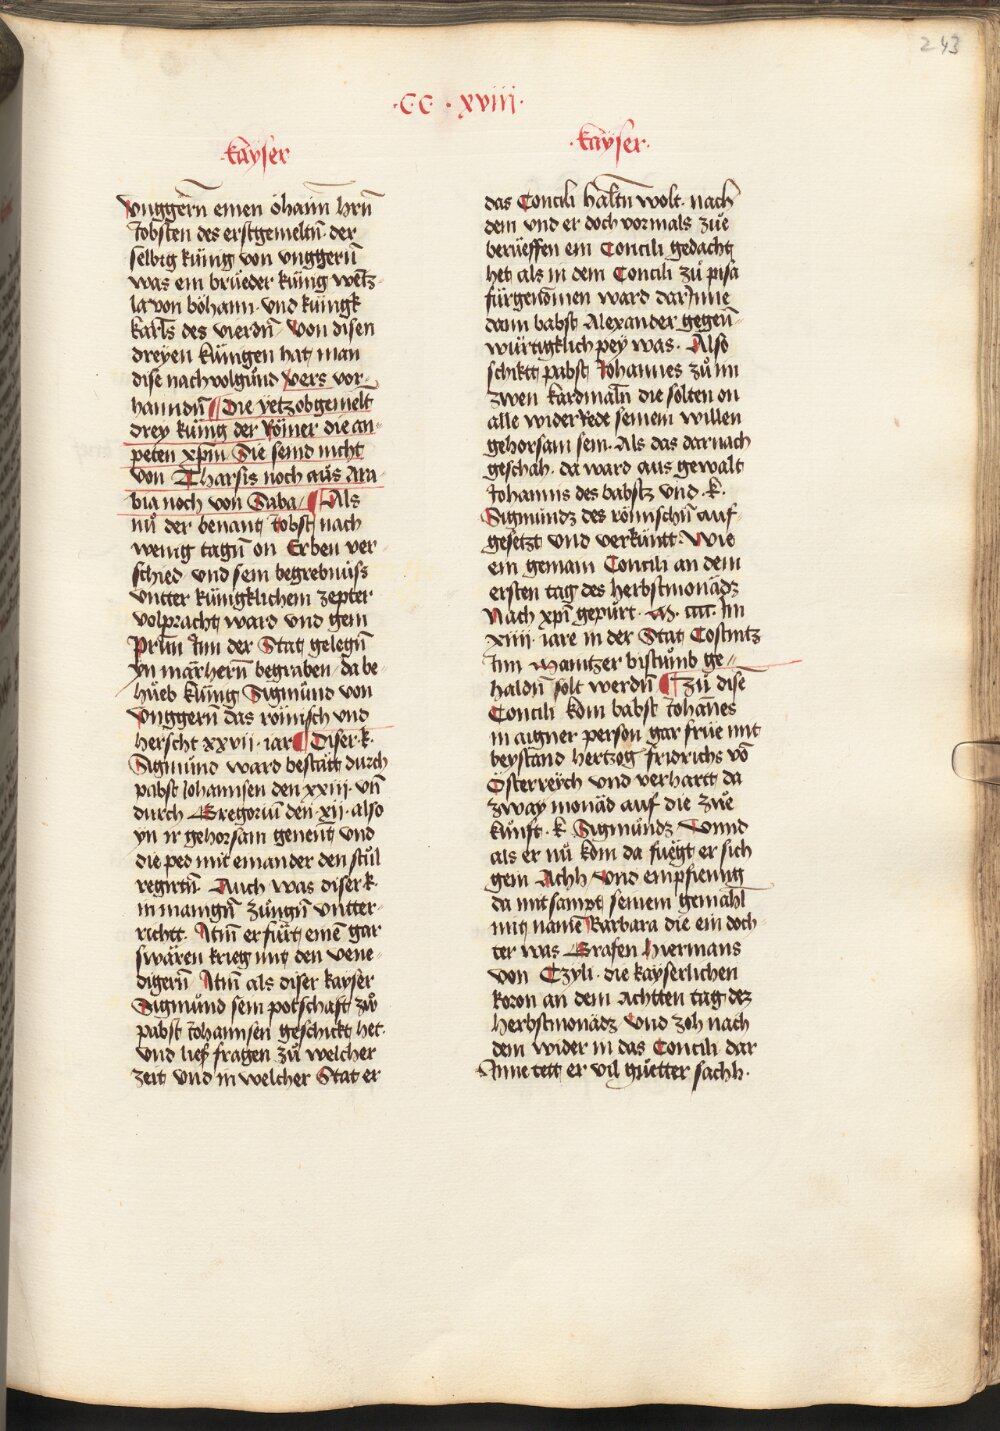 243
·CC·xviij·
kayser
Vnggern̄ einen öhaim̄ hrn̄
Jobsten des erstgemeltn̄· der
selbig künig von vnggern̄
was ein brueder künig wetz-
la von böhann· vnd kunigk
karls des vierdn̄ Von disen
dreyen künigen hat man
dise nachvolgund vers vor-
hanndn̄ ¶ Die yetzobgemelt
drey künig der Römer die an-
peten xp̄m· Sie seind nicht
von Tharsis noch aus Ara-
bia noch von Saba/ ¶ Als
nu der benant Jobst nach
wenig tagn̄ on Erben ver
schied· vnd sein begrebnuss
vntter künigklichem zepter
volpracht ward vnd gein
Prün̄ Inn der Stat gelegn̄
yn märhern̄ begraben/ da be-
hueb künig Sigmund von
Vnggern̄ das römisch vnd
herscht xxvij· iar ¶ Diser·k·
Sigmund ward bestätt durch
pabst Johannsen den xxiij· vn̄
durch Gregorium den·xij·also
yn ir gehorsam genent vnd
die ped mit einander den stul
regirtn̄· Auch was diser·k·
in mangn̄ zungn̄ vntter-
richtt· Itm̄ er fürt einē gar
swären krieg mit den vene-
digern̄ Itm̄ als diser kayser
Sigmund sein potschaft zu
pabst Johannsen geschickt het·
Vnd lieſz fragen zu welcher
zeit vnd in welcher Stat er
·kayser·
das Concili haltn̄ wolt· nach
dem vnd er doch vormals zue
berueffen ein Concili gedacht
het als in dem Concili zu pisa
fürgenomen ward dar Inne
dann babst Alexander gegen-
würtigklich pey was· Also
schiktt pabst Johannes zu im
zwen kardinaln̄ die solten on
alle wider Rede seinem willen
gehorsam sein· Als das darnach
geschah· da ward aus gewalt
Johannis des babstz vnd·k·
Sigmundz des römischn̄ auf-
gesetzt vnd verkuntt· Wie
ein gemain Concili an dem
ersten tag des herbstmonadz
Nach xp̄i gepürt· M· cccc· Im
xiiij· iare in der Stat Costnitz
Inn Maintzer bistumb ge-
haldn̄ solt werdn̄ ¶ Zu disē
Concili kom babst Johannes
in aigner person gar frue mit
beystand hertzog fridrichs vō
Österreych vnd verhartt da
zway monad auf die zue
kunft·k· Sigmundz/ Vnnd
als er nu kom da fuegt er sich
gem Achh/ vnd empfienng
da mitsampt seinem gemahl
mit namē Barbara die ein doch-
ter was Grafen hiermans
von Czyli· die kayserlichen
koron an dem Achtten tag dez
herbstmonadz vnd zoh nach
dem wider in das Concili dar
Inne tett er vil guetter sachh·